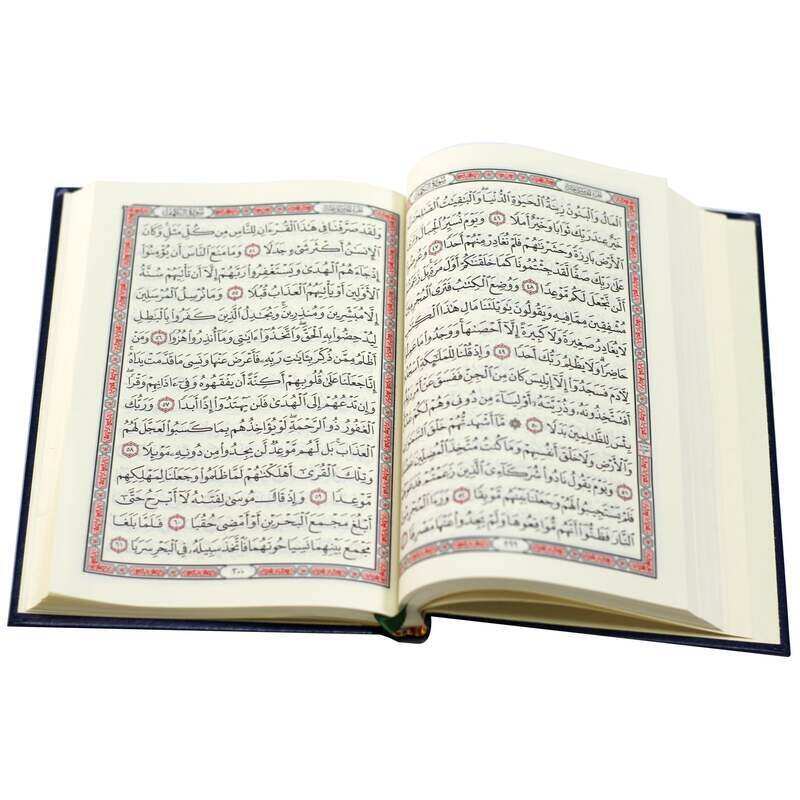 سورة الكهف
ٱلْمَالُ وَٱلْبَنُونَ زِينَةُ ٱلْحَيَوٰةِ ٱلدُّنْيَا وَٱلْبَٰقِيَٰتُ
خَيْرٌ عِندَ رَبِّكَ ثَوَابًا وَخَيْرٌ أَمَلًا ٤٦ وَيَوْمَ نُسَيِّرُ ٱلْجِبَالَ
ٱلْأَرْضَ بَارِزَةً وَحَشَرْنَٰهُمْ فَلَمْ نُغَادِرْ مِنْهُمْ أَحَدًا ٤٧
عَلَىٰ رَبِّكَ صَفًّا لَّقَدْ جِئْتُمُونَا كَمَا خَلَقْنَٰكُمْ أَوَّلَ مَرَّةٍ بَلْ
أَلَّن نَّجْعَلَ لَكُم مَّوْعِدًا ٤٨ وَوُضِعَ ٱلْكِتَٰبُ فَتَرَى
مُشْفِقِينَ مِمَّا فِيهِ وَيَقُولُونَ يَٰوَيْلَتَنَا مَالِ هَٰذَا ٱلْكِتَٰبِ
لَا يُغَادِرُ صَغِيرَةً وَلَا كَبِيرَةً إِلَّآ أَحْصَىٰهَا وَوَجَدُوا۟ مَا
حَاضِرًا وَلَا يَظْلِمُ رَبُّكَ أَحَدًا ٤٩ وَإِذْ قُلْنَا لِلْمَلَٰٓئِكَةِ
لِءَادَمَ فَسَجَدُوٓا۟ إِلَّآ إِبْلِيسَ كَانَ مِنَ ٱلْجِنِّ فَفَسَقَ عَنْ
أَفَتَتَّخِذُونَهُۥ وَذُرِّيَّتَهُۥٓ أَوْلِيَآءَ مِن دُونِى وَهُمْ لَكُمْ
بِئْسَ لِلظَّٰلِمِينَ بَدَلًا ٥٠ مَّآ أَشْهَدتُّهُمْ خَلْقَ
وَٱلْأَرْضِ وَلَا خَلْقَ أَنفُسِهِمْ وَمَا كُنتُ مُتَّخِذَ ٱلْمُضِلِّينَ
٥١ وَيَوْمَ يَقُولُ نَادُوا۟ شُرَكَآءِىَ ٱلَّذِينَ زَعَمْتُمْ
فَلَمْ يَسْتَجِيبُوا۟ لَهُمْ وَجَعَلْنَا بَيْنَهُم مَّوْبِقًا ٥٢ وَرَءَا
ٱلنَّارَ فَظَنُّوٓا۟ أَنَّهُم مُّوَاقِعُوهَا وَلَمْ يَجِدُوا۟ عَنْهَا مَصْرِفًا
٢٩٩
سورة الكهف
وَلَقَدْ صَرَّفْنَا فِى هَٰذَا ٱلْقُرْءَانِ لِلنَّاسِ مِن كُلِّ مَثَلٍ وَكَانَ
ٱلْإِنسَٰنُ أَكْثَرَ شَىْءٍ جَدَلًا ٥٤ وَمَا مَنَعَ ٱلنَّاسَ أَن يُؤْمِنُوٓا۟
إِذْ جَآءَهُمُ ٱلْهُدَىٰ وَيَسْتَغْفِرُوا۟ رَبَّهُمْ إِلَّآ أَن تَأْتِيَهُمْ سُنَّةُ
ٱلْأَوَّلِينَ أَوْ يَأْتِيَهُمُ ٱلْعَذَابُ قُبُلًا ٥٥ وَمَا نُرْسِلُ ٱلْمُرْسَلِينَ
إِلَّا مُبَشِّرِينَ وَمُنذِرِينَ وَيُجَٰدِلُ ٱلَّذِينَ كَفَرُوا۟ بِٱلْبَٰطِلِ
لِيُدْحِضُوا۟ بِهِ ٱلْحَقَّ وَٱتَّخَذُوٓا۟ ءَايَٰتِى وَمَآ أُنذِرُوا۟ هُزُوًا ٥٦ وَمَنْ
أَظْلَمُ مِمَّن ذُكِّرَ بِـَٔايَٰتِ رَبِّهِۦ فَأَعْرَضَ عَنْهَا وَنَسِىَ مَا قَدَّمَتْ يَدَاهُ
إِنَّا جَعَلْنَا عَلَىٰ قُلُوبِهِمْ أَكِنَّةً أَن يَفْقَهُوهُ وَفِىٓ ءَاذَانِهِمْ وَقْرًا
وَإِن تَدْعُهُمْ إِلَى ٱلْهُدَىٰ فَلَن يَهْتَدُوٓا۟ إِذًا أَبَدًا ٥٧ وَرَبُّكَ
ٱلْغَفُورُ ذُو ٱلرَّحْمَةِ لَوْ يُؤَاخِذُهُم بِمَا كَسَبُوا۟ لَعَجَّلَ لَهُمُ
ٱلْعَذَابَ بَل لَّهُم مَّوْعِدٌ لَّن يَجِدُوا۟ مِن دُونِهِۦ مَوْئِلًا ٥٨
وَتِلْكَ ٱلْقُرَىٰٓ أَهْلَكْنَٰهُمْ لَمَّا ظَلَمُوا۟ وَجَعَلْنَا لِمَهْلِكِهِم
مَّوْعِدًا ٥٩ وَإِذْ قَالَ مُوسَىٰ لِفَتَىٰهُ لَآ أَبْرَحُ حَتَّىٰٓ
أَبْلُغَ مَجْمَعَ ٱلْبَحْرَيْنِ أَوْ أَمْضِىَ حُقُبًا ٦٠ فَلَمَّا بَلَغَا
مَجْمَعَ بَيْنِهِمَا نَسِيَا حُوتَهُمَا فَٱتَّخَذَ سَبِيلَهُۥ فِى ٱلْبَحْرِ سَرَبًا ٦١
٣٠٠